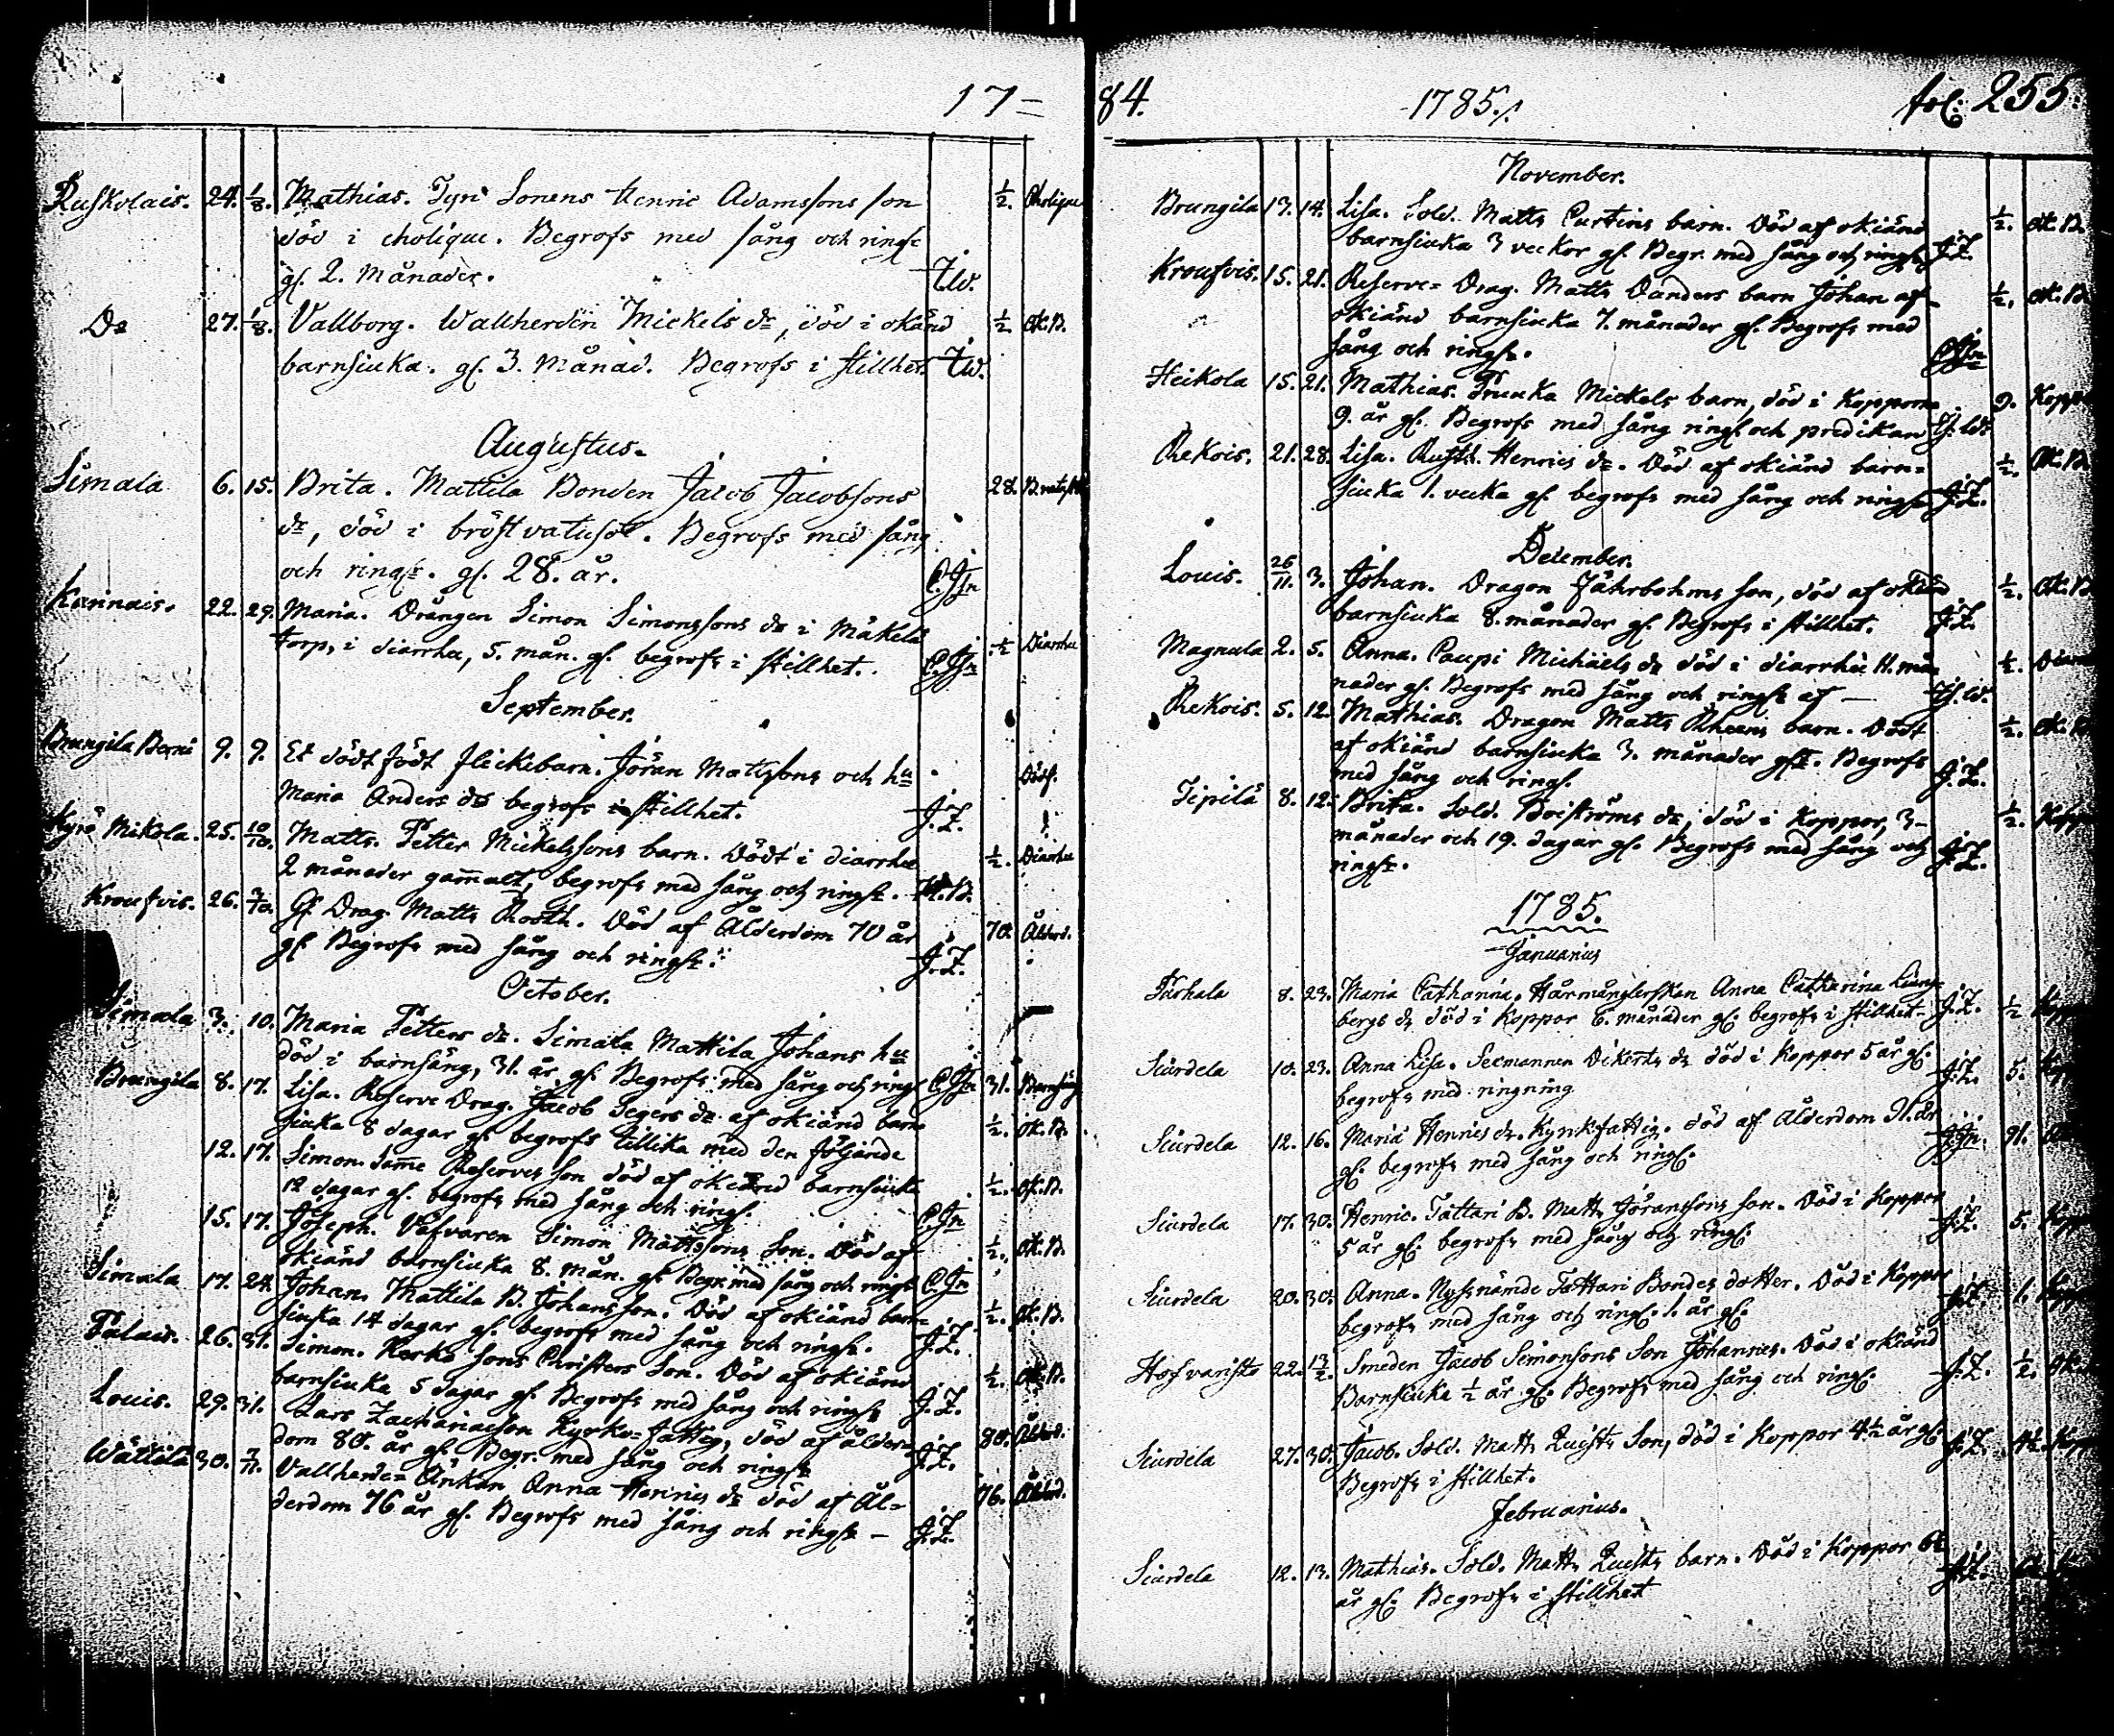 17=
Ruskolais. 24. 1/8. Mathias. Tyri Sonens Henric Adamssons son 1/2. Cholique
död i cholique. Begrofs med sång och ringn:
gl. 2. Månader. J.W.
Do 27. 1/8. Vallborg. Wallherden Mickels dr, död i okänd 1/2. Ok.B.
barnsiuka. gl. 3. Månad. Begrofs i stillhet. J.W.
Augustus.
Simala 6. 15. Brita. Mattila Bonden Jacob Jacobsons 28.
dr, död i bröstvatusot. Begrofs med sång
och ringn:. gl. 28. år. C.Jn
Karinais. 22. 29. Maria. Drängen Simon Simonssons dr i Mäkelä 1/2 Diarrhee
torp, i diarrha, 5. mån. gl. begrofs i stillhet. C.Jn
September.
Brungila Berni 9. 9. Et dödt födt flickebarn. Jöran Mattssons och hu Dödf.
Maria Anders dr begrofs i stillhet. J.Z.
Kyrö Mikola. 25. 10/10. Matts. Petter Mickelssons barn. Dödt i diarrhee 1/2. Diarrhee
2 månader gamalt, begrofs med sång och ringn:.
Kroufvis. 26. 3/10. Gl. Drag. Matts Rooth. Död af Ålderdom 70 år 70. Ålderd.
gl. Begrofs med sång och ringn:. J.Z.
October.
Simala 3. 10. Maria Petters dr. Simala Mattila Johans hu
död i barnsäng, 31. år gl. Begrofs med sång och ringn C.Jn 31. Barnsäng
Brungila 8. 17. Lisa. Reserve Drag. Jacob Segers dr af okiänd barn
siuka 8 dagar gl. begrofs tillika med den följande 1/2. Ok.B.
12. 17. Simon. Samme Reserves son död af okiänd barnsiuka
12 dagar gl. begrofs med sång och ringn. C.Jn 1/2. Ok.B.
15. 17. Joseph. Väfvaren Simon Mattssons Son. Död af
okiänd barnsiuka 8. mån. gl. Begr. med sång och ringn: C.Jn 1/2. Ok.B.
Simala 17. 24. Johan. Mattila B. Johans son. Död af okiänd barn=
siuka 14 dagar gl. begrofs med sång och ringn:. J.Z. 1/2. Ok.B.
26. 31. Simon. Kerko sons Christers Son. Död af okiänd
barnsiuka 5 dagar gl. Begrofs med sång och ringn: J.Z. 1/2. Ok.B.
Louis. 29. 31. Lars Zachariaeson Kyrko=fattig, död af ålder=
dom 80. år gl. Begr. med sång och ringn: J.Z. 80. Ålderd.
Wättilä 30. 7/11. Vallherde=Änkan Anna Henrics dr död af Ål=
derdom 76 år gl. Begrofs med sång och ringn: – J.Z. 76. Ålderd.
84. 1785. fol: 255:
November.
Brungila 13. 14. Lisa. Sold. Matts Curtins barn. Död af okiänd 1/2. Ok.B.
barnsiuka 3 veckor gl. Begr. med sång och ringn: J.Z.
Kroufvis. 15. 21. Reserve=Drag. Matts Danders barn Johan af 1/2. Ok.B.
okiänd barnsiuka 7. månader gl. Begrofs med
sång och ringn:. C.Jn
Heikola 15. 21. Mathias. Truuka Mickels barn, död i Kopporne 9.
9. år gl. Begrofs med sång ringn: och predikan J.W.
Rekois. 21. 28. Lisa. Rusth. Henrics dr. Död af okiänd barn= 1/2. Ok.B.
siuka 1. vecka gl. begrofs med sång och ringn: J.Z.
December.
Louis. 26/11. 3. Johan. Dragon Fährbohms son, död af okiänd 1/2. Ok.B.
barnsiuka 8. månader gl. Begrofs i stillhet. J.Z.
Magnula 2. 5. Anna. Caupi Michaels dr död i diarrhée 11. må= 1/2.
nader gl. Begrofs med sång och ringn: af – J.W.
Rekois. 5. 12. Mathias. Dragon Matts Rheens barn. Dödt 1/2.
af okiänd barnsiuka 3. månader glt. Begrofs
med sång och ringn. J.Z.
Jipilä 8. 12. Brita. Sold. Boiströms dr, död i koppor, 3– 1/2.
månader och 19. dagar gl. Begrofs med sång och
ringn:. J.Z.
1785.
Januarius
8. 23. Maria Catharina. Hårmånglerskan Anna Catharina Liung=
bergs dr död i Koppor 6. månader gl. begrofs i stillhet– J.Z. 1/2
Siurdela 10. 23. Anna Lisa. Seemannen Eikerts dr död i Koppor 5 år gl.
begrofs med ringning J.Z. 5.
Siurdela 12. 16. Maria Henrics dr. Kyrkfattig. död af Ålderdom 91. år
gl. begrofs med sång och ringn: 91.
Siurdela 17. 30. Henric. Tattari B. Matts Jöranssons son. Död i Koppor
5 år gl. begrofs med sång och ringn: J.Z. 5.
Siurdela 20. 30. Anna. Nyssnämde Tattari Bondes dotter. Död i Koppor
begrofs med sång och ringn:. 1. år gl. J.Z. 1.
Hofvaristo 22. 13/2. Smeden Jacob Simonsons Son Johannes. Död i okiänd
Barnsiuka 1/2 år gl. Begrofs med sång och ringn: J.Z. 1/2.
Siurdela 27. 30. Jacob. Sold. Matts Quists Son, död i Koppor 4 1/2 år gl: J.Z. 4 1/2
Begrofs i stillhet.
Februarius.
Siurdela 12. 13. Mathias. Sold. Matts Quists barn. Död i Koppor
år gl. Begrofs i stillhet J.Z.